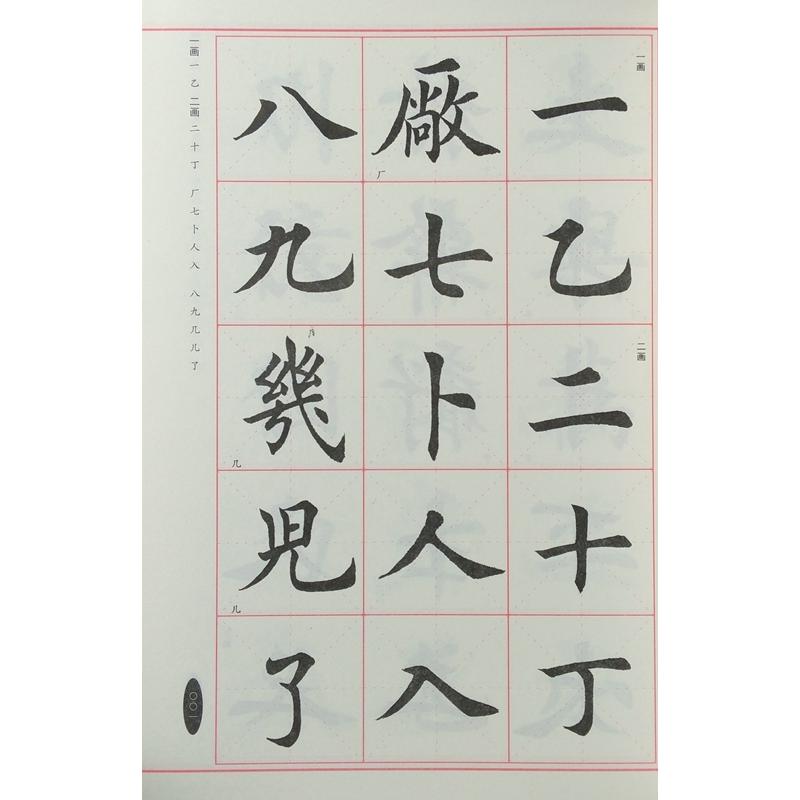 一画
一
乙
二画
二
十
丁
厰
厂
七
卜
人
入
八
九
幾
几
児
儿
了
一画 一 乙 二画 二 十 丁 厂 七 卜 人 入 八 九 几 儿 了
〇〇一